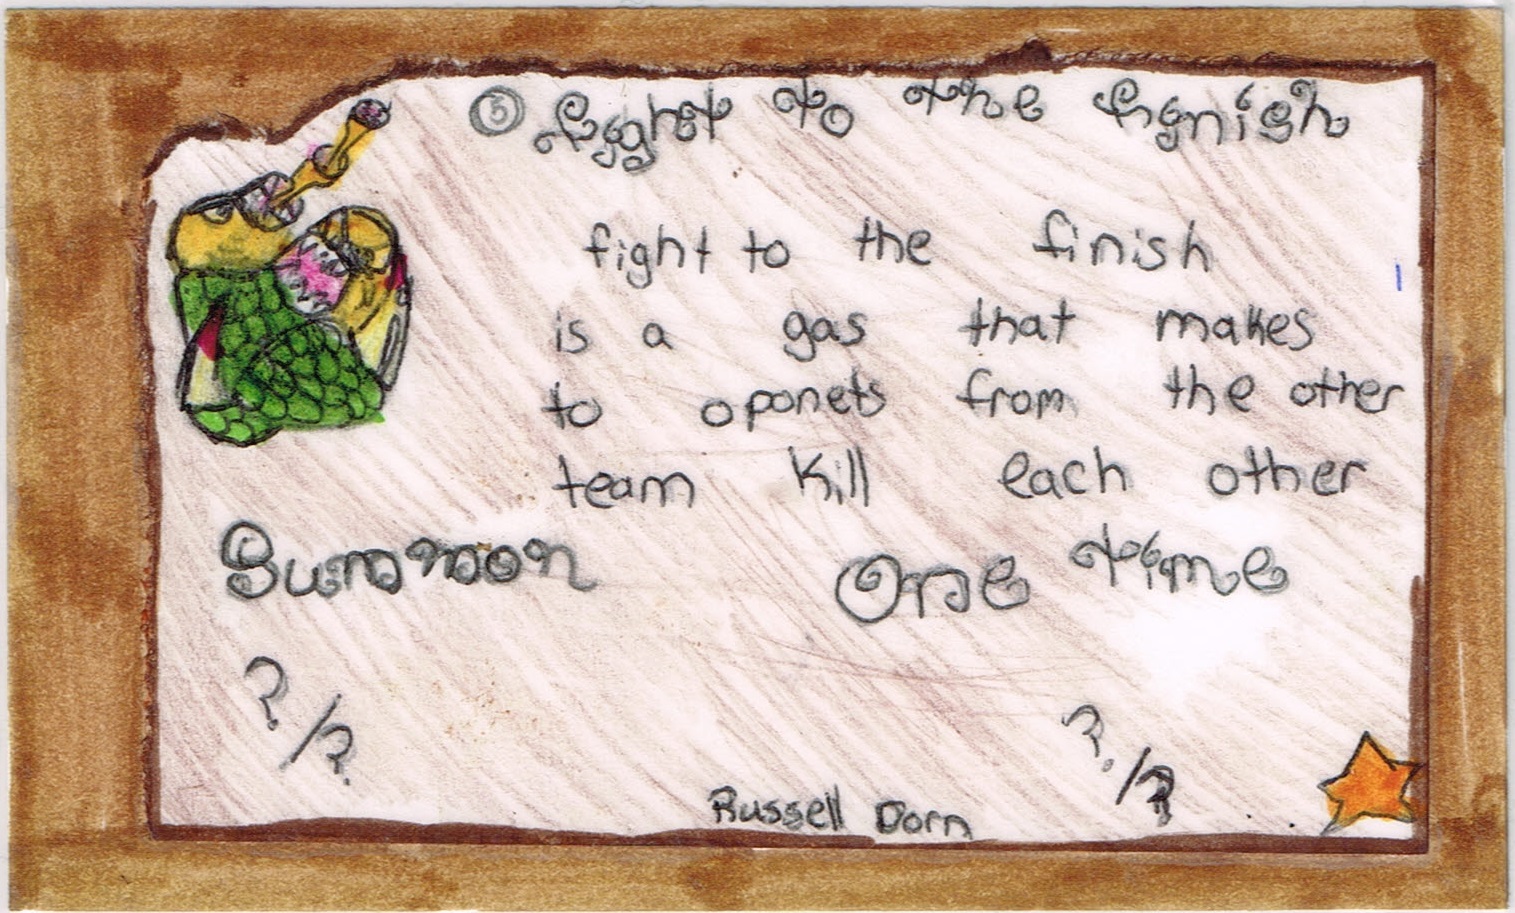 5 Fight to the finish
fight to the finish
is a gas that makes
to oponets from the other
team kill each other
Summon One time
?/? ?/?
Russell Dorn